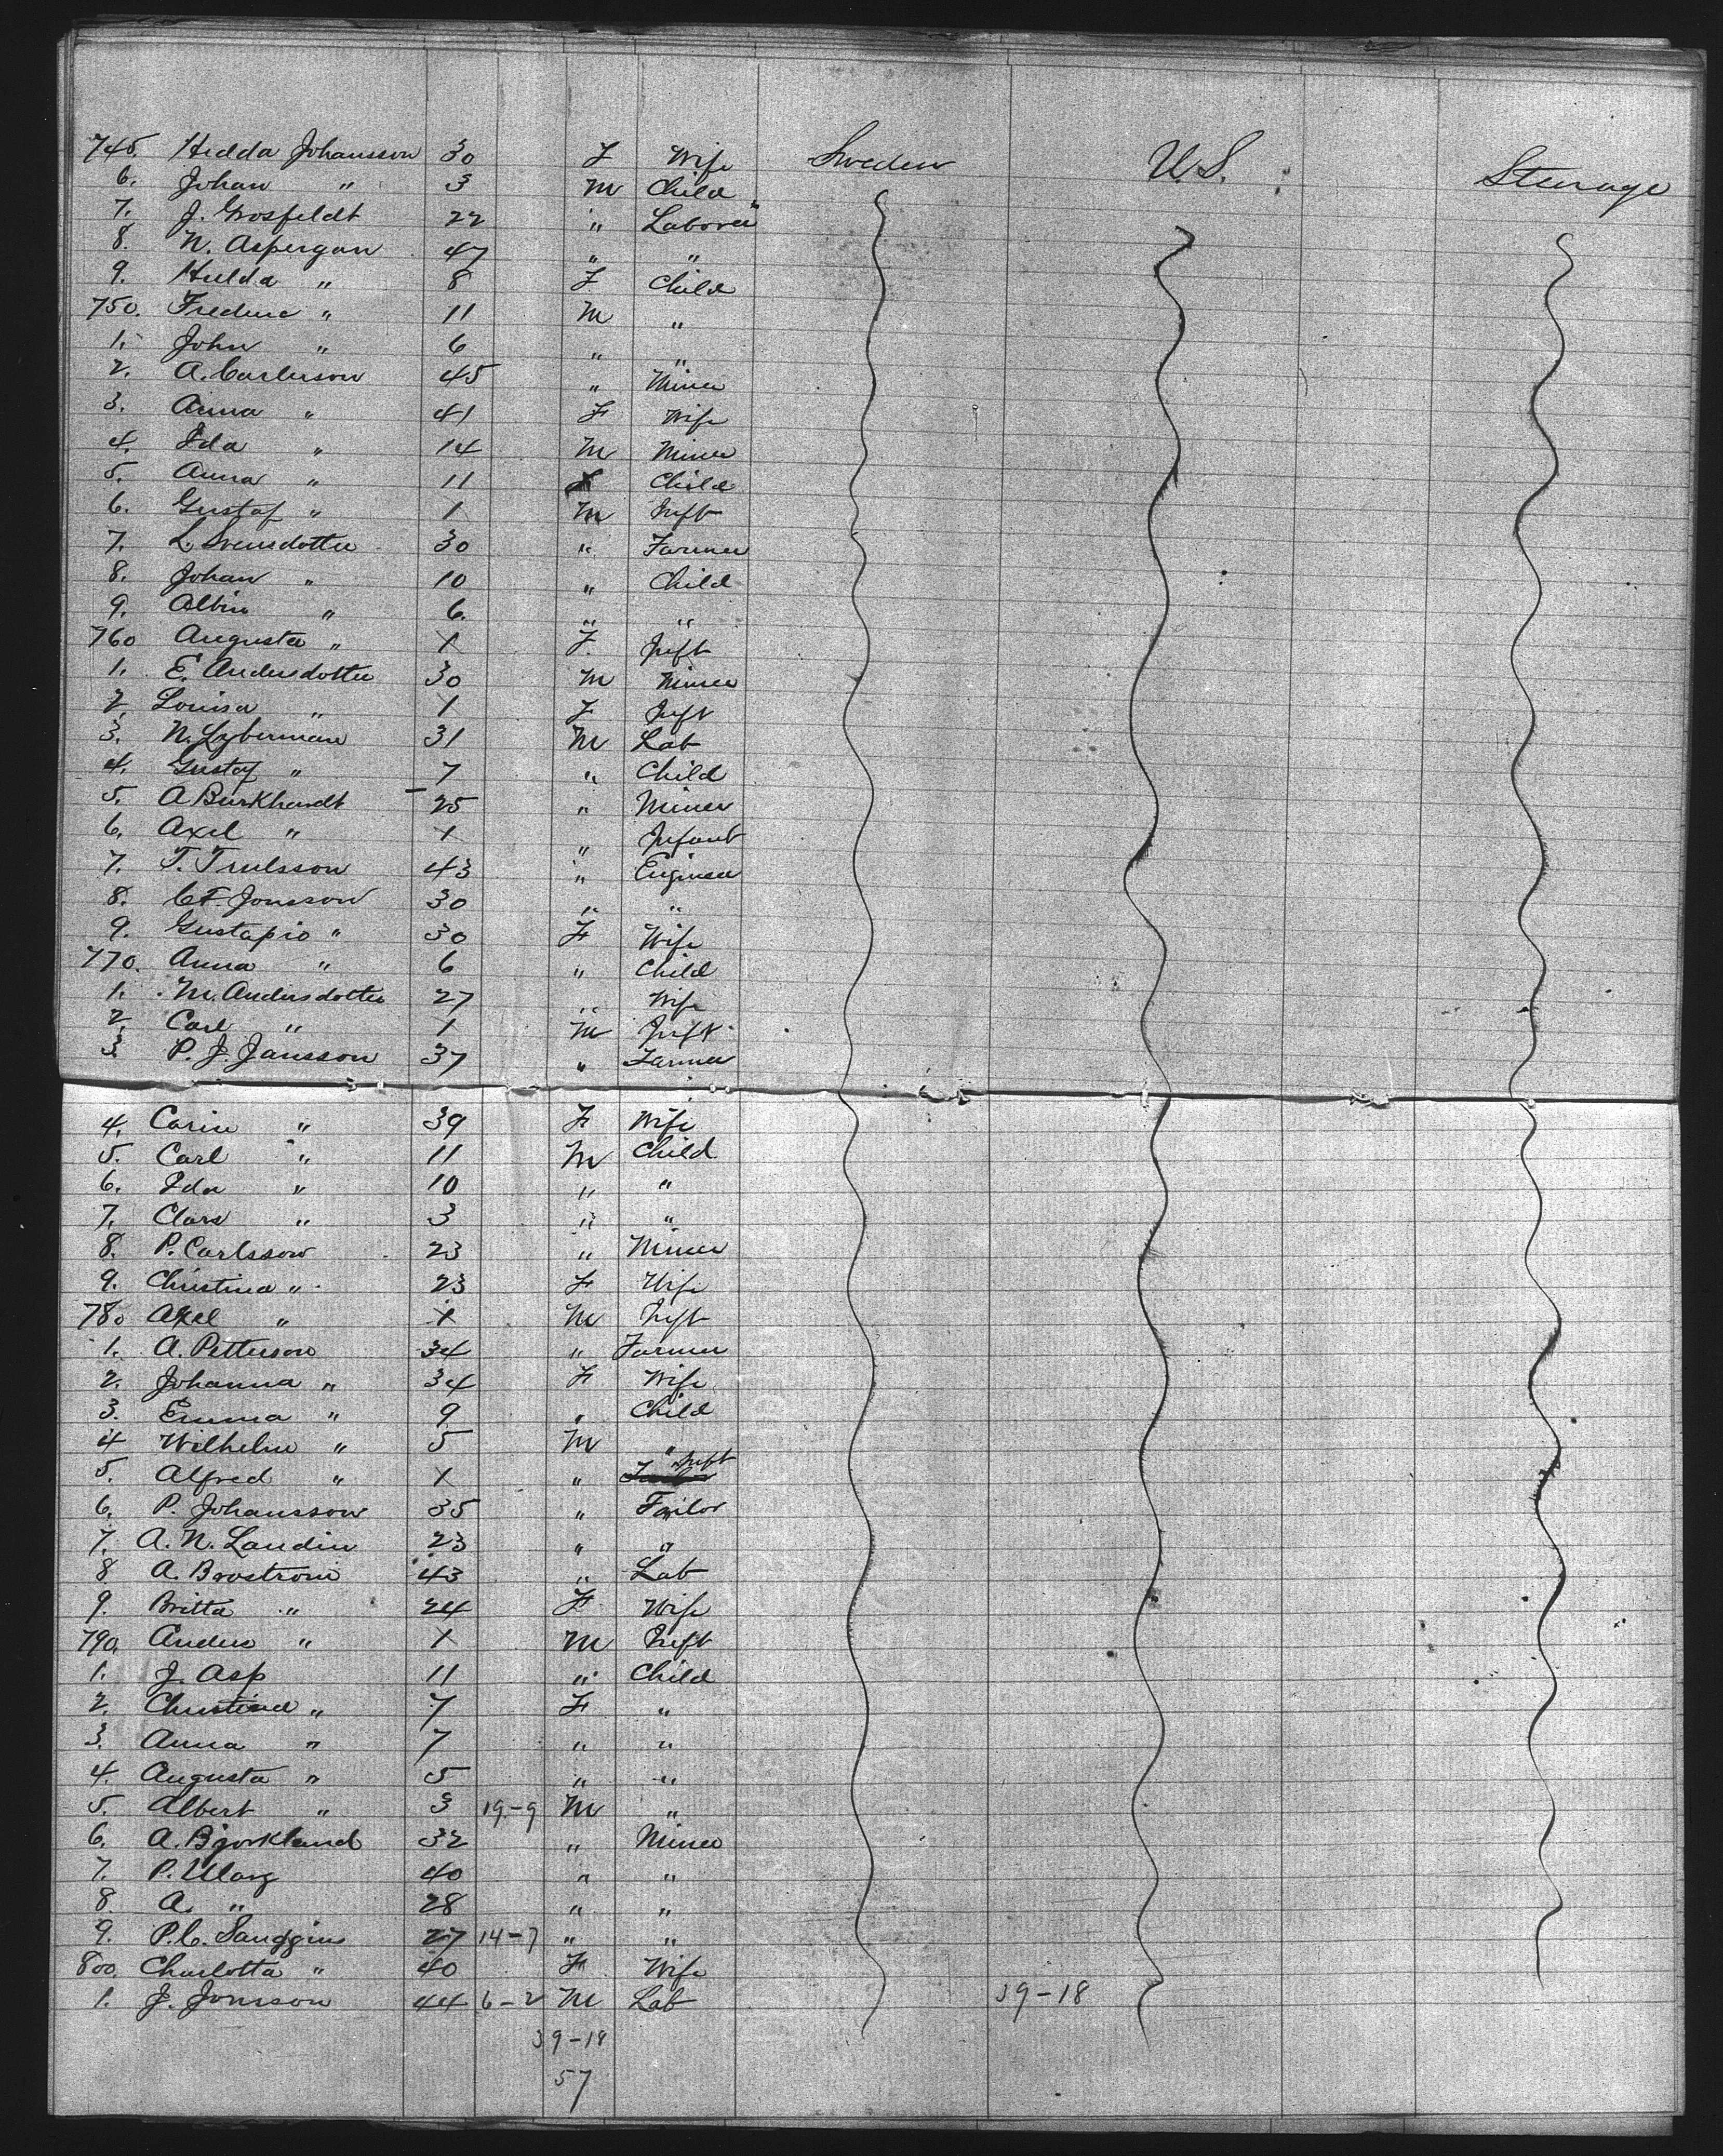 745. Hedda Johansson 30 F Wife Sweden U.S. Steerage
6. Johan " 3 M Child
7. J. Grosfeldt 22 " Laborer
8. N. Aspergan 47 " "
9. Hulda " 8 F Child
750. Frederic " 11 M "
1. John " 6 " "
2. A. Carlesson 45 " Miner
3. Anna " 41 F Wife
4. Ida " 14 M Miner
5. Anna " 11 F Child
6. Gustaf " 1 M Inft
7. L. Svensdotter 30 " Farmer
8. Johan " 10 " Child
9. Albin " 6. " "
760 Augusta " 1 F. Inft
1. E. Andersdotter 30 M Miner
2. Louisa " 1 F Inft
3. N. Lyberman 31 M Lab
4. Gustaf " 7 " Child
5. A Burkhardt 25 " Miner
6. Axel " 1 " Infant
7. T. Trulsson 43 " Engineer
8. C F. Jonsson 30 " "
9. Gustapio " 30 F Wife
770. Anna " 6 " Child
1. M. Andersdotter 27 " Wife
2. Carl " 1 M Inft
3. P. J. Jansson 37 " Farmer
4. Carin " 39 F Wife
5. Carl " 11 M Child
6. Ida " 10 " "
7. Clara " 3 " "
8. P. Carlsson 23 " Miner
9. Christina " 23 F Wife
780 Axel " 1 M Inft
1. A. Petterson 34 " Farmer
2. Johanna " 34 F Wife
3. Emma " 9 " Child
4 Wilhelm " 5 M "
5. Alfred " 1 " Inft
6. P. Johansson 35 " Tailor
7. A. N. Landin 23 " "
8 A. Brostrom 43 " Lab
9. Britta " 24 F Wife
790. Anders " 1 M Inft
1. J. Asp 11 " Child
2. Christina " 7 F "
3. Anna " 7 " "
4. Augusta " 5 " "
5. Albert " 3 19-9 M "
6. A. Bjorkland 32 " Miner
7. P. Ularg 40 " "
8. A. " 28 " "
9. P. C. Sanggins 27 14-7 " "
800. Charlotta " 40 F Wife
1. J. Jonsson 44 6-2 M Lab 39-18
39-18
57